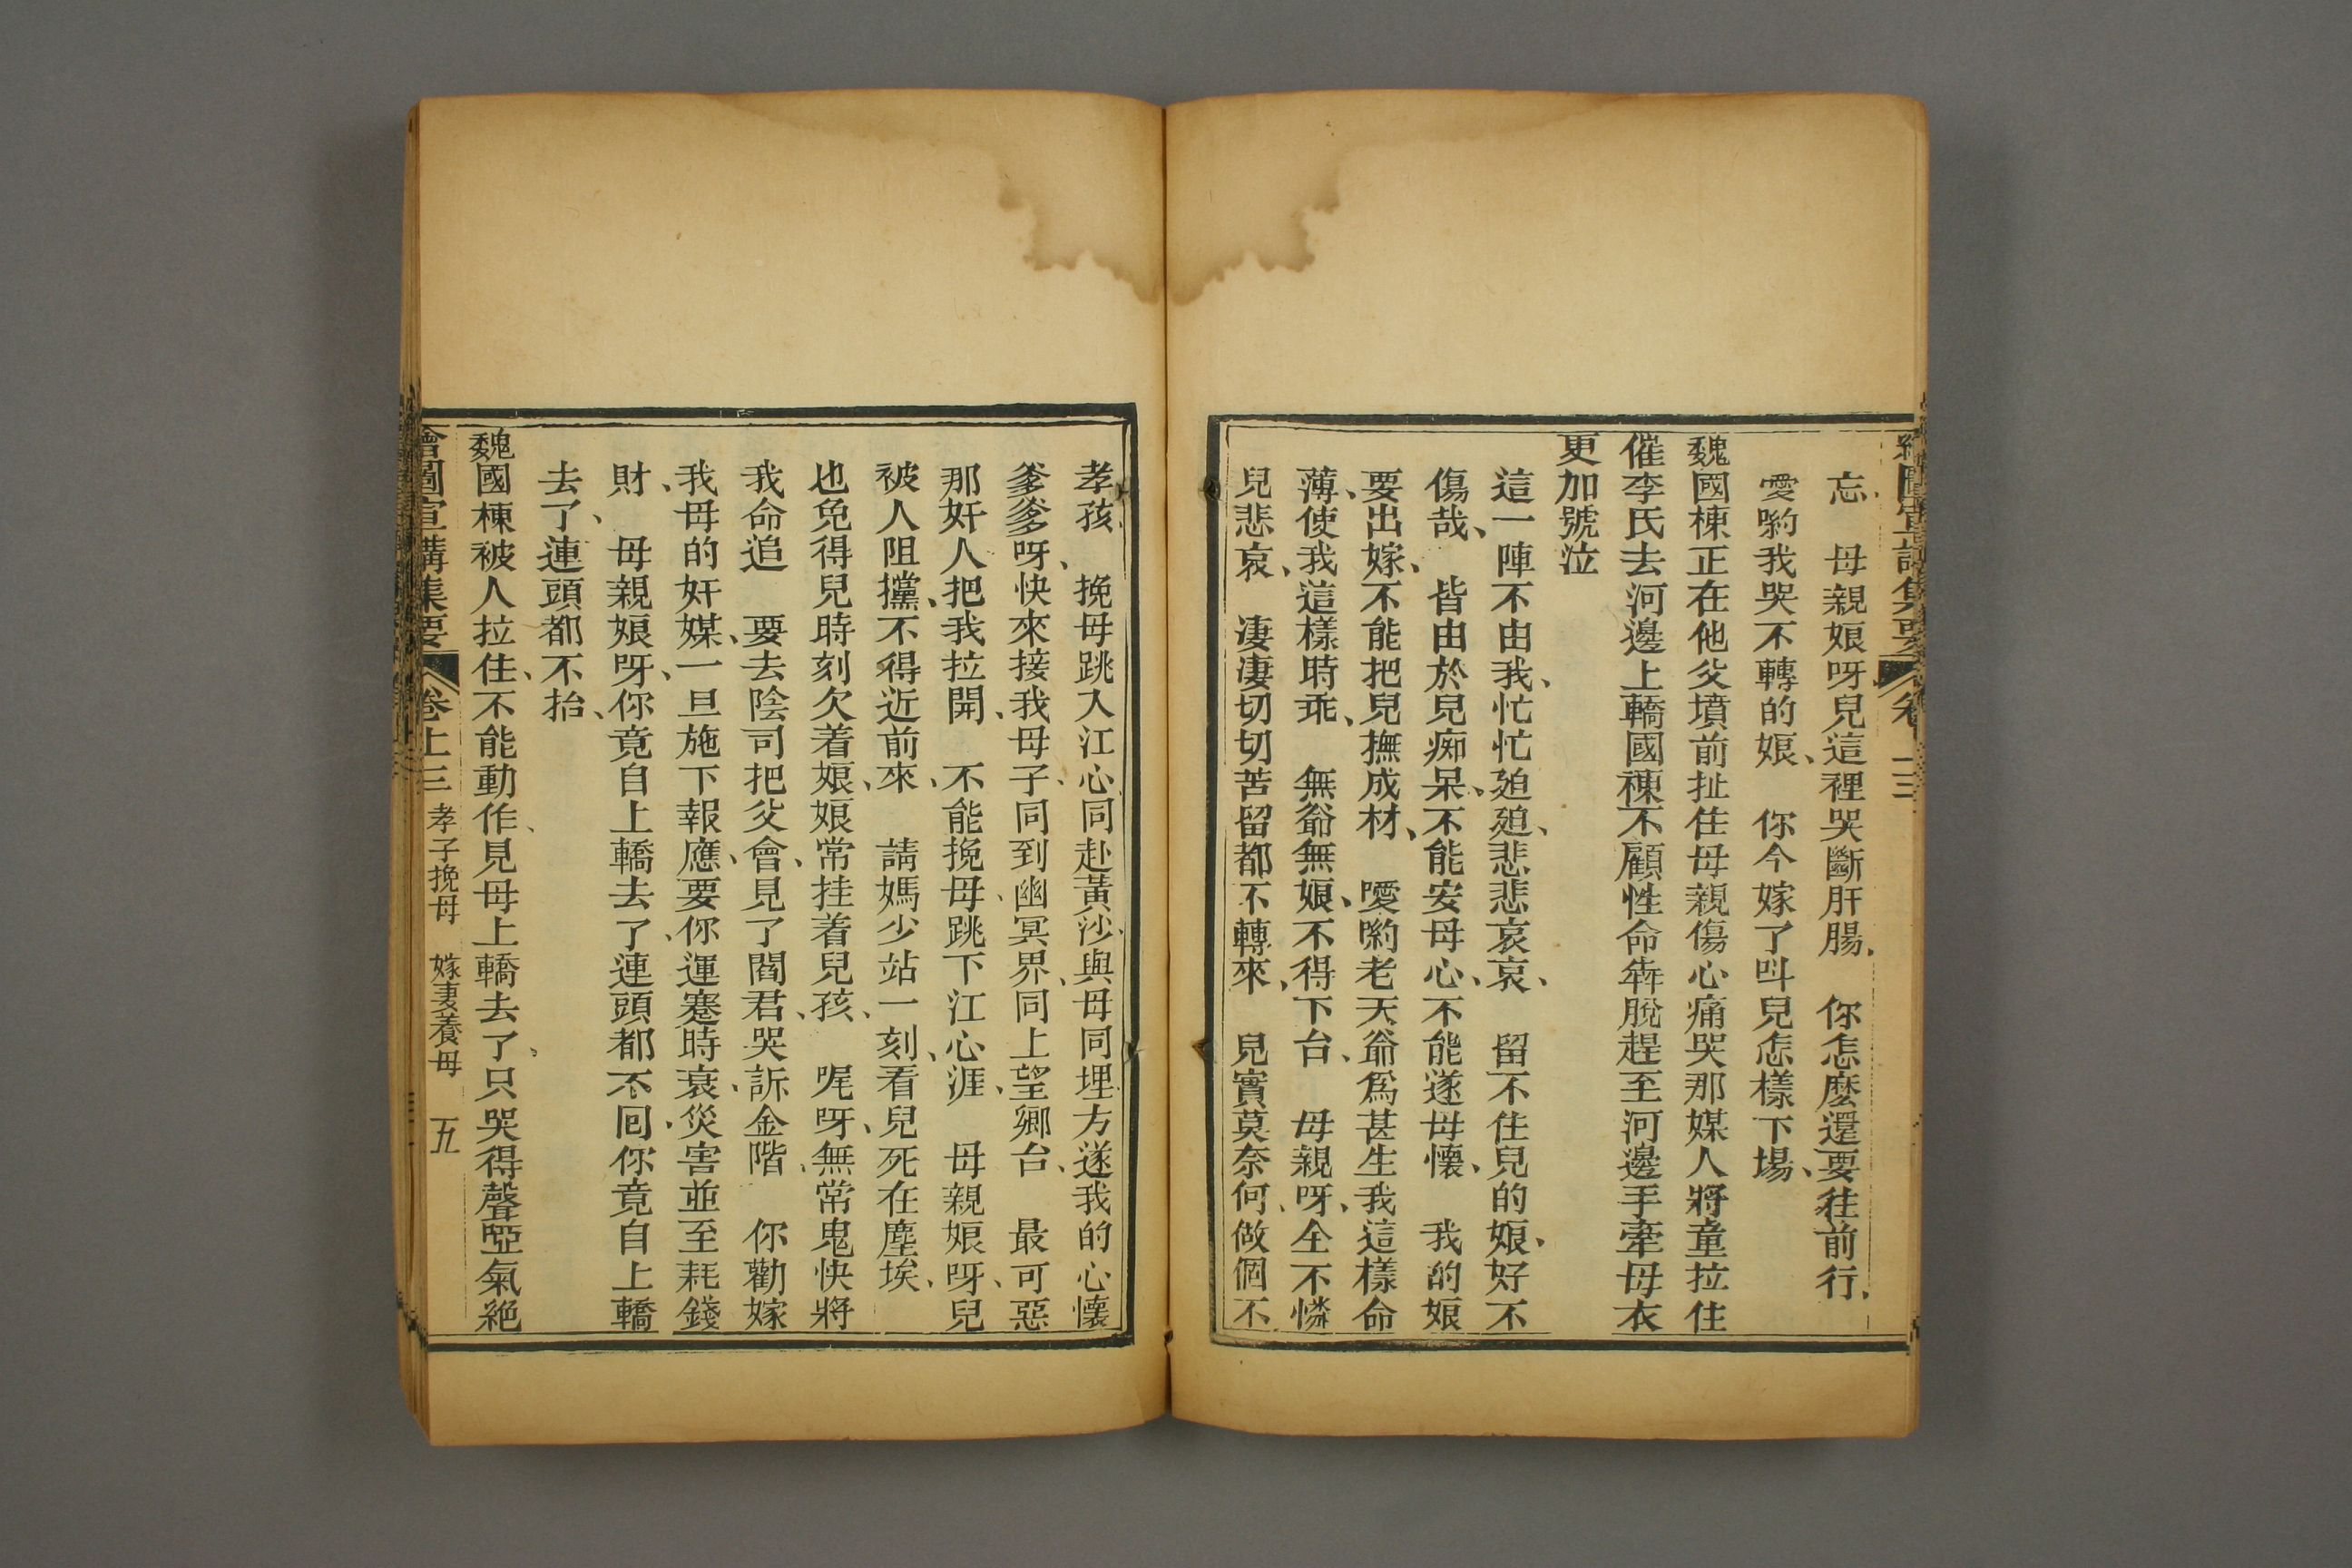 忘、母親娘呀兒這裡哭斷肝腸、你怎麼還要往前行、
噯喲我哭不轉的娘、你今嫁了呌兒怎樣下場、
魏國棟正在他父墳前扯住母親傷心痛哭那媒人將童拉住
催李氏去河邊上轎國棟不顧性命犇脫趕至河邊手牽母衣
更加號泣
這一陣不由我、忙忙廹廹、悲悲哀哀、留不住兒的娘、好不
傷哉、皆由於兒痴呆、不能安母心、不能遂母懷、我的娘
要出嫁、不能把兒撫成材、噯喲老天爺爲甚生我這樣命
薄、使我這樣時乖、無爺無娘、不得下台、母親呀、全不憐
兒悲哀、凄凄切切苦留都不轉來、兒實莫奈何、做個不
孝孩、挽母跳入江心同赴黃沙、與母同埋方遂我的心懷
爹爹呀、快來接我母子、同到幽冥界、同上望鄉台、最可惡
那奸人把我拉開、不能挽母、跳下江心涯、母親娘呀、兒
被人阻攩、不得近前來、請媽少站一刻、看兒死在塵埃、
也免得兒時刻欠着娘、娘常挂着兒孩、喔呀、無常鬼快將
我命追　要去陰司把父會、見了閻君、哭訴金階、你勸嫁
我母的奸媒、一旦施下報應、要你運蹇時衰、災害並至耗錢
財、母親娘呀、你竟自上轎去了、連頭都不囘、你竟自上轎
去了、連頭都不抬、
魏國棟被人拉住、不能動作、見母上轎去了、只哭得聲啞氣絶
繪圖宣講集要　卷上三　孝子挽母　嫁妻養母　五